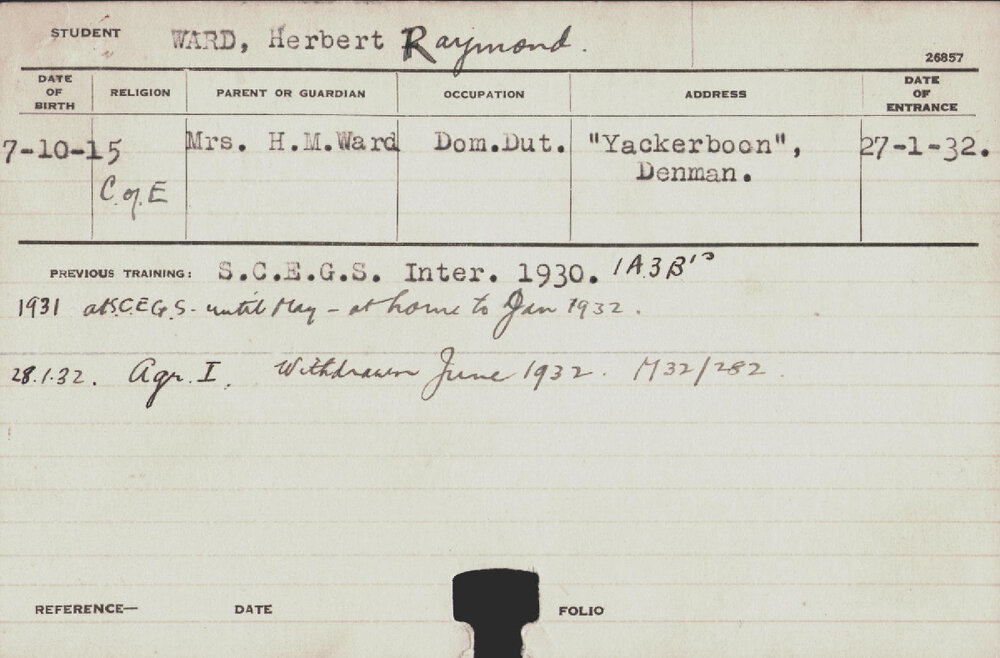 STUDENT WARD, Herbert Raymond.
26857
DATE OF BIRTH RELIGION PARENT OR GUARDIAN OCCUPATION ADDRESS DATE OF ENTRANCE
7-10-15 Mrs. H.M.Ward Dom.Dut. "Yackerboon", 27-1-32.
C. of E Denman.
PREVIOUS TRAINING: S.C.E.G.S. Inter. 1930. 1A3B's
1931 at S.C.E.G.S. - until May - at home to Jan 1932.
28.1.32. Agr. I. Withdrawn June 1932. M32/282
REFERENCE— DATE FOLIO